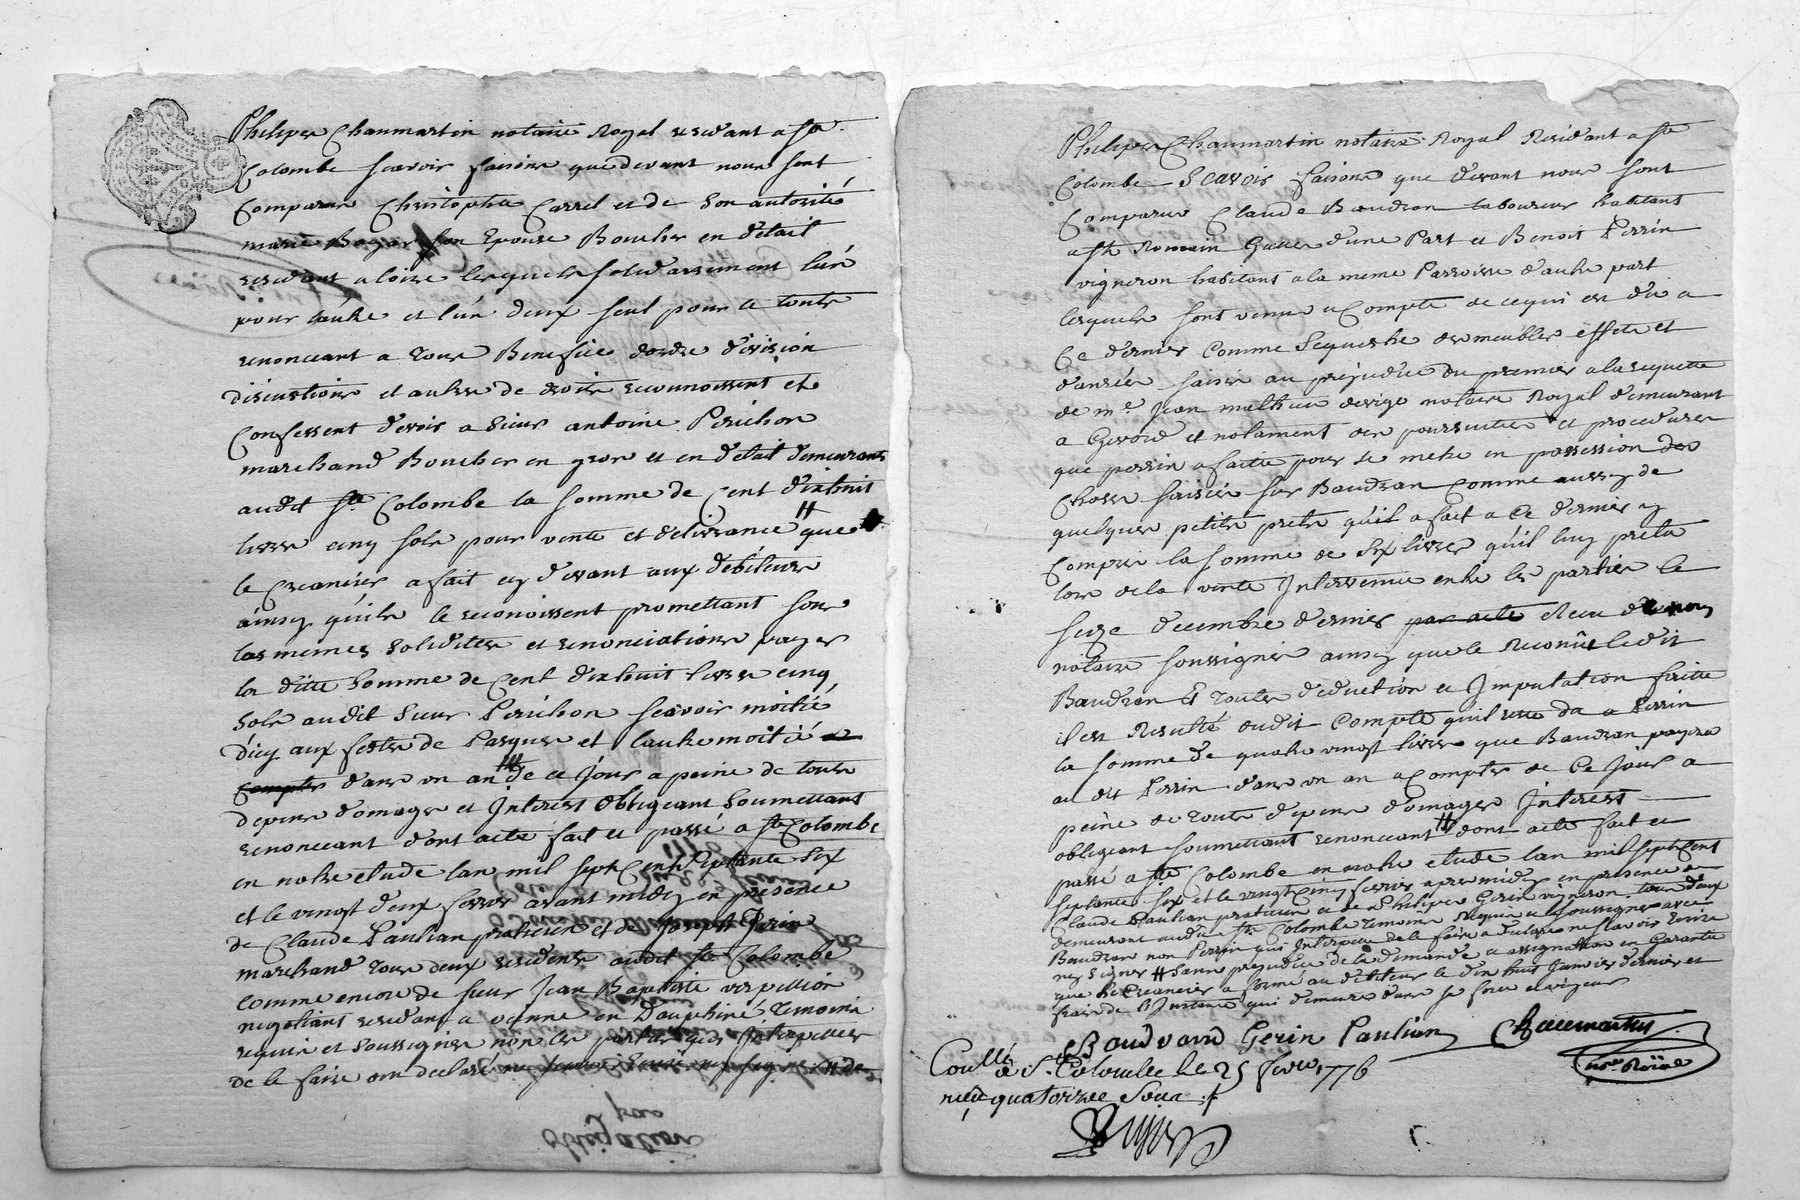 Philipes Chaumartin notaire Royal residant a Ste
Colombe scavoir faisons que devant nous sont
Comparus Christophe Carrel et de Son autorité
marie Boyer son Epouse Boucher en détail
residant a loire lesquels solidairement l'un
pour l'autre et l'un deux seul pour le toute
renonceant a tous Benefice dordre d'ivision
discustions et autres de droits reconnoissent et
Confessent devoir a Sieur antoine Perichon
marchand Boucher en gros et en d'etait demeurants
audit Ste Colombe la somme de Cent d'ixhuit
livres cinq sols pour vente et d'elivrance que
le Creancier a fait cy d'evant aux d'ebiteurs
ainsy qu'ils le reconoissent promettant sous
les memes solidites et renonciations payer
la d'itte Somme de Cent d'ixhuit livres cinq
sols audit Sieur Perichon scavoir moitié
d'icy aux festes de Pasques et l'autre moitié a
compter dans un an de ce jour a peine de toute
depens d'omages et Interest obligeant Soumettant
renonceant dont acte fait et passé a Ste Colombe
en notre etude l'an mil sept Cent septante six
et le vingt d'eux fevrier avant midy en presence
de Claude Paulian praticien et de Joseph Gerin
marchand tous deux residents audit Ste Colombe
comme encore de sieur Jean Baptiste verpillion
negotiant residant a vienne en Dauphiné Temoins
requis et soussignes non les parties qui Interpelles
de le faire ont declaré ne scavoir Ecrire ny signer de
par
obligation
Philipes Chaumartin notaire Royal Residant a Ste
Colombe Scavoir faisons que devant nous sont
Comparus Claude Baudran laboureur habitant
a St Romain Galles d'une Part et Benoit Perrin
vigneron habitant a la meme Parroisse d'autre part
lesquels sont venus a Compte de ce qui est d'u a
Ce d'ernier Comme Sequestre des meubles effets et
danrées saisis au prejudice du premier a la requette
de me Jean mathieu notaire Royal demeurant
a Givord et notament des poursuittes et procedures
que perrin a faitte pour se metre en possession des
Choses saisies sur Baudran Comme aussy de
quelques petits prets qu'il a fait a Ce d'ernier y
Compris la somme de six livres qu'il luy preta
lors de la vente Intervenue entre les parties le
seize decembre d'ernier par acte Recu de nous
notaire soussignes ainsy que le reconoit ledit
Baudran Et toutes d'eduction et Imputation faitte
il est Resulté dudit Compte qu'il reste du a Perrin
la somme de quatre vingt livres que Baudran payera
au dit Perrin dans un an a Compter de Ce jour a
peine de toute d'epens d'omages Interest
obligeant soumettant renonceant dont acte fait et
passé a Ste Colombe en notre etude l'an mil sept Cent
septante six et le vingt cinq fevrier apres midy en presence de
Claude Paulian praticien et de Philipes Gerin vigneron tous deux
demeurant audit Ste Colombe Temoins Requis et soussignes avec
Baudran non Perrin qui Interpellé de le faire a declaré ne scavoir Ecrire
ny signer sans prejudice de la demande et assignation en Garantie
que le Creancier a formé au d'ebiteur le dix huit Janvier dernier et
frais de l'Instance qui demeure dans sa force et vigueur
Baudrand Gerin Paulian Chaumartin
nre Roïal
Coullé à Ste Colombe le 25 fevrier 1776
reçu quatorze Sous